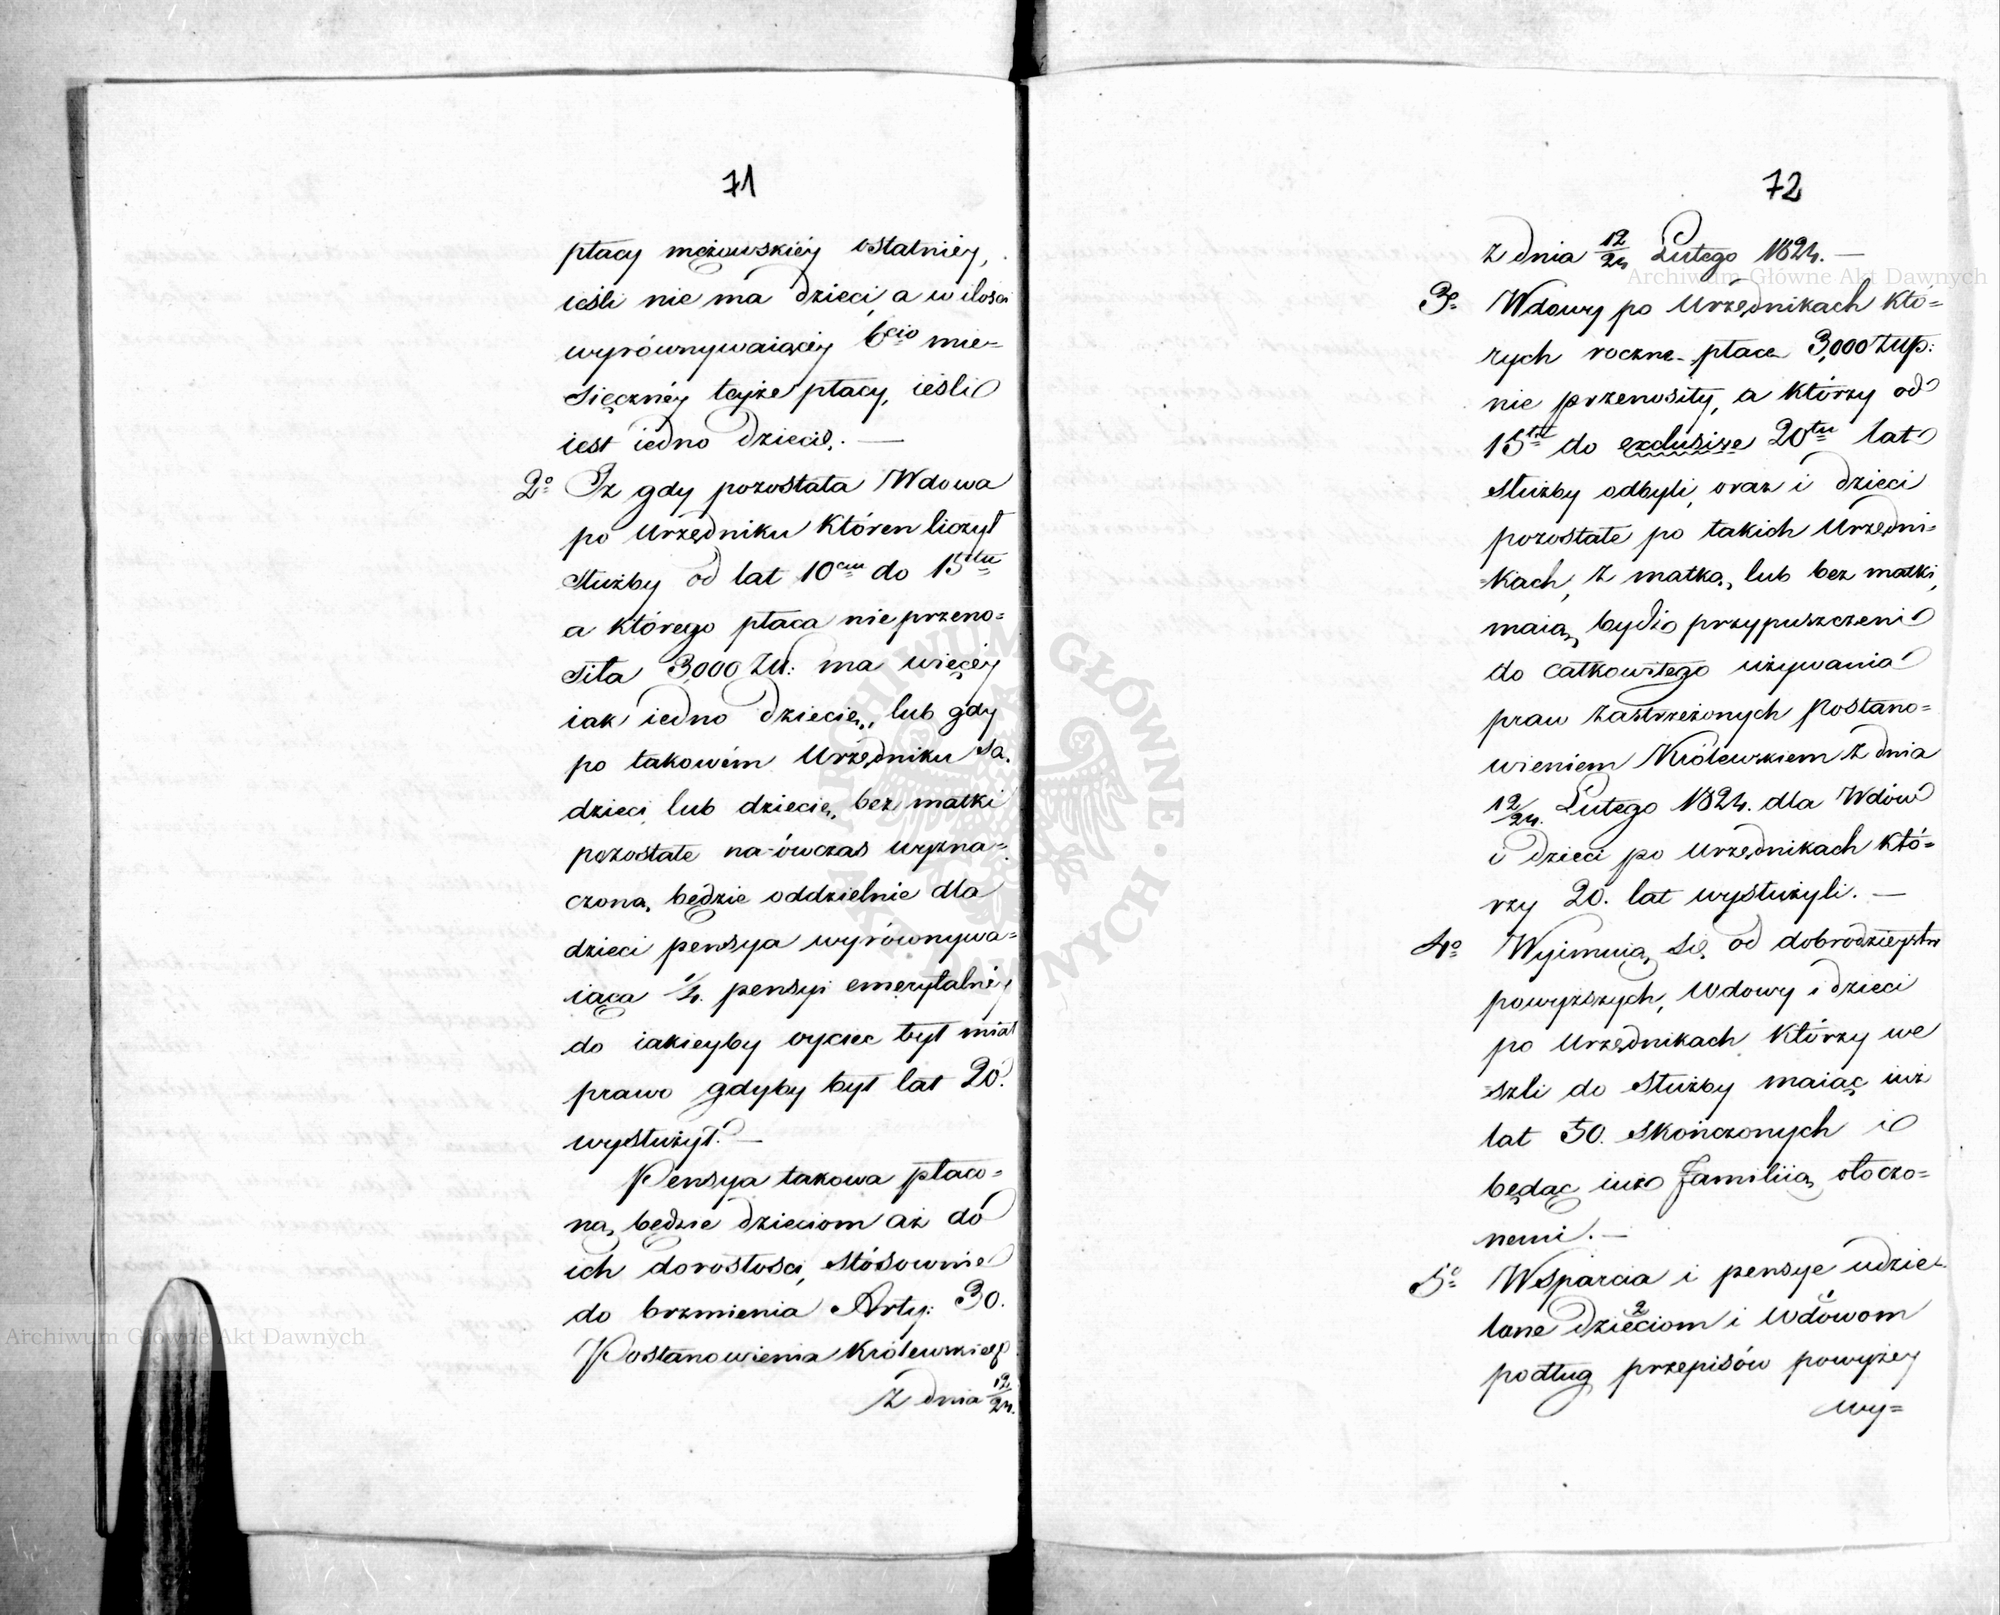 71
płacy mężowskiéy ostatniéy,
ieśli nie ma dzieci, a w ilości
wyrównywaiącéy 6cio mie=
sięcznéy teyże płacy, ieśli
iest iedno dziecię. —
2o Iż gdy pozostała Wdowa
po Urzędniku któren liczył
służby od lat 10ciu do 15stu
a którego płaca nie przeno=
siła 3,000 Zł: ma więcéy
iak iedno dziecię, lub gdy
po takowém Urzędniku są
dzieci lub dziecię, bez matki
pozostałe na-ówczas wyzna=
czoną będzie oddzielnie dla
dzieci pensya wyrównywa=
iąca 1/4. pensyi emerytalnéy
do iakieyby oyciec był miał
prawo gdyby był lat 20.
wysłużył. —
Pensya takowa płaco=
ną będzie dzieciom aż do
ich dorosłości, stósownie
do brzmienia Arty: 30.
Postanowienia Królewskieg
z dnia 12/24.
72
z dnia 12/24 Lutego 1824. —
3o Wdowy po Urzędnikach któ=
rych roczne płace 3,000 Złp:
nie przenosiły, a którzy od
15tu do exclusive 20tu lat
służby odbyli, oraz i dzieci
pozostałe po takich Urzędni=
kach, z matką, lub bez matki,
maią bydź przypuszczeni
do całkowitego używania
praw zastrzeżonych Postano=
wieniem Królewskiem z dnia
12/24. Lutego 1824. dla Wdów
i dzieci po Urzędnikach któ=
rzy 20. lat wysłużyli. —
4o Wyimuią się od dobrodzieystw
powyższych, Wdowy i dzieci
po Urzędnikach którzy we
szli do służby maiąc iuż
lat 50. skończonych i
będąc iuż familiią otoczo=
nemi. —
5o Wsparcia i pensye udzie=
lane dzieciom i Wdowom
2
podług przepisów powyżey
wy=
Archiwum Główne Akt Dawnych
Archiwum Główne Akt Dawnych
ARCHIWUM GŁÓWNE · AKT DAWNYCH ·